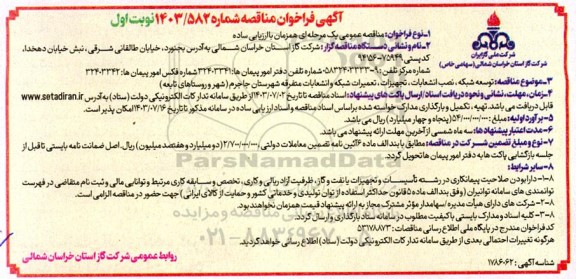 آگهی فراخوان مناقصه شماره ۱۴۰۳/۵۸۲ نوبت اول
شرکت ملی گاز ایران
شرکت گاز استان خراسان شمالی (سهامی خاص)
۱_نوع فراخوان: مناقصه عمومی یک مرحله‌ای همزمان با ارزیابی ساده
۲_نام و نشانی دستگاه مناقصه گزار: شرکت گاز استان خراسان شمالی به آدرس بجنورد، خیابان طالقانی شرقی، نبش خیابان دهخدا،
کدپستی ۷۵۹۴۹-۹۴۱۵۶
شماره مرکز تلفن: ۱-۰۵۸۳۲۴۰۲۳۳۳ شماره تلفن دفتر امور پیمان ها: ۳۲۴۰۳۳۴۱ شماره فکس امور پیمان ها: ۳۲۴۰۳۳۴۲
۳_موضوع مناقصه: توسعه شبکه، نصب انشعابات، تجهیزات، تعمیرات شبکه وانشعابات متفرقه شهرستان جاجرم (شهر و روستاهای تابعه)
۴_زمان، مهلت، نشانی ونحوه دریافت اسناد/ارسال پاکت های پیشنهاد: اسناد مناقصه تا تاریخ ۱۴۰۳/۰۷/۰۲ از طریق سامانه تدارکات الکترونیکی دولت (ستاد) به آدرس www.setadiran.ir
قابل دریافت می باشد. تهیه، تکمیل و بارگذاری مدارک خواسته شده براساس اسناد مناقصه و اسناد ارزیابی ساده در سامانه مذکور تا تاریخ ۱۴۰۳/۰۷/۱۶ امکان پذیر است.
۵_برآورد اولیه: مبلغ ۵۴/۰۰۰/۰۰۰/۰۰۰ (پنجاه و چهار میلیارد) ریال می باشد.
۶_مدت اعتبار پیشنهادها: سه ماه شمسی از آخرین مهلت ارائه پیشنهاد می باشد.
۷_نوع و مبلغ تضمین شرکت در مناقصه: مطابق با بند الف ماده ۶ آئین نامه تضمین معاملات دولتی ۲/۷۰۰/۰۰۰/۰۰۰ (دو میلیارد و هفتصد میلیون) ریال. اصل ضمانت نامه بایستی تا قبل از
جلسه بازگشایی پاکت ها به دفتر امور پیمان ها تحویل گردد.
۸_سایر شرایط:
۱-۸-دارا بودن صلاحیت پیمانکاری در رشته تأسیسات و تجهیزات یا نفت و گاز، ظرفیت آزاد ریالی و کاری، تخصص و سابقه کاری مرتبط و توانایی مالی و ثبت نام متقاضی در فهرست
توانمندی های سامانه توانیران (وفق بند الف ماده ۵ قانون حداکثر استفاده از توان تولیدی و خدماتی کشور و حمایت از کالای ایرانی) جهت حضور در مناقصه الزامی است.
۲-۸-شرکت های دارای هیأت مدیره/سهامدار مؤثر مشترک مجاز به ارائه پیشنهاد قیمت همزمان نخواهند بود.
۳-۸-کلیه اسناد و مدارک بایستی با کیفیت مطلوب در سامانه ستاد بارگذاری و ارسال گردد.
کد فراخوان مندرج در پایگاه ملی اطلاع رسانی مناقصات: ۵۳۱۷۸۸۷۳
هرگونه تغییرات احتمالی بعدی از طریق سامانه تدارکات الکترونیکی دولت (ستاد) اطلاع رسانی خواهد گردید.
شناسه آگهی: ۱۷۸۶۰۶۲
روابط عمومی شرکت گاز استان خراسان شمالی
ParsNamadData
۰۲۱-۸۸۳۴۹۶۷۰